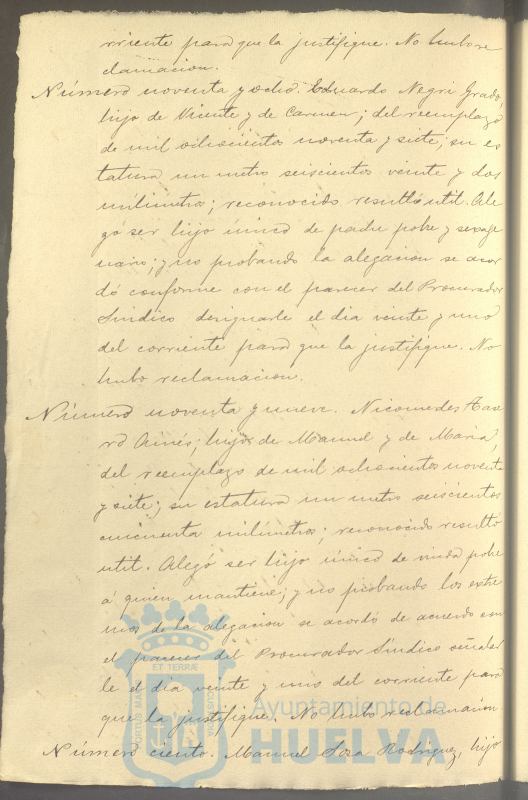 rriente para que la justifique. No hubo re
clamacion.
Número noventa y ocho. Eduardo Negri Grado,
hijo de Vicente y de Carmen; del reemplazo
de mil ochocientos noventa y siete; su es
tatura un metro seiscientos veinte y dos
milimetros; reconocido resultó util. Ale
gó ser hijo único de padre pobre y sexage
nario; y no probando la alegacion se acor
dó conforme con el parecer del Procurador
Sindico designarle el dia veinte y uno
del corriente para que la justifique. No
hubo reclamacion.
Número noventa y nueve. Nicomedes
hijo de Manuel y de Maria,
del reemplazo de mil ochocientos noventa
y siete; su estatura un metro seiscientos
cincuenta milimetros; reconocido resultó
util. Alegó ser hijo único de viuda pobre
á quien mantiene; y no probando los extre
mos de la alegacion se acordó de acuerdo con
el parecer del Procurador Sindico señalar
le el dia veinte y uno del corriente para
que la justifique. No hubo reclamacion.
Número ciento. Manuel Rodriguez, hijo
ET TERRÆ
PORTUS MARIS
CUSTODIA
Ayuntamiento de
HUELVA